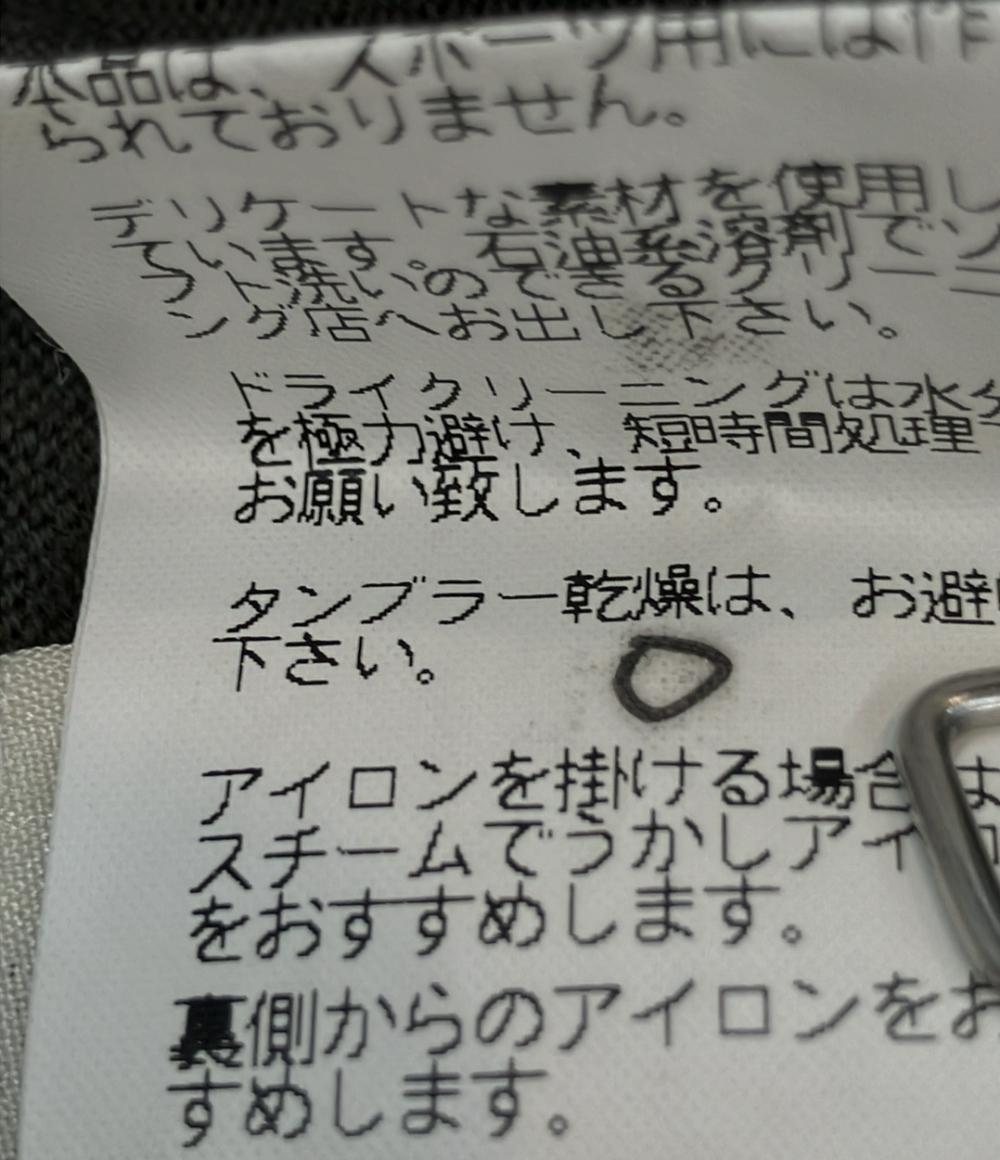 本品は、スポーツ用には作
られておりません。
デリケートな素材を使用し
ています。石油系溶剤でソ
フト洗いのできるクリーニ
ング店へお出し下さい。
ドライクリーニングは水分
を極力避け、短時間処理で
お願い致します。
タンブラー乾燥は、お避け
下さい。
アイロンを掛ける場合は
スチームでうかしアイロ
をおすすめします。
裏側からのアイロンをお
すめします。